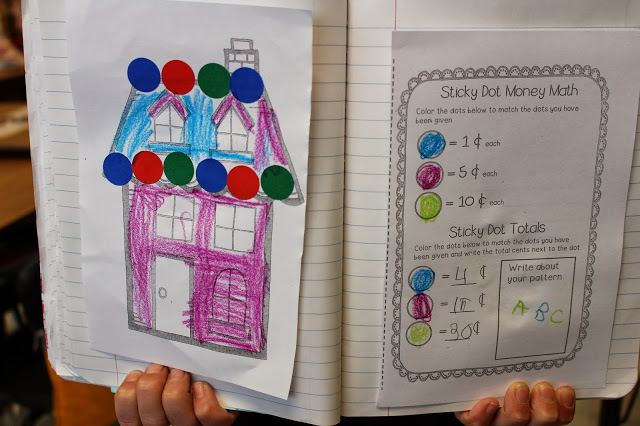 Sticky Dot Money Math
Color the dots below to match the dots you have
been given
= 1 ¢ each
= 5 ¢ each
= 10 ¢ each
Sticky Dot Totals
Color the dots below to match the dots you have
been given and write the total cents next to the dot.
= 4 ¢
= ¢
= 30¢
Write about
your pattern.
A B C